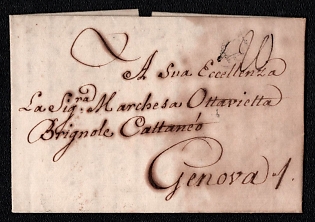 A Sua Eccellenza
La Sig.ra Marchesa Ottavietta
Brignole Cattaneo
Genova